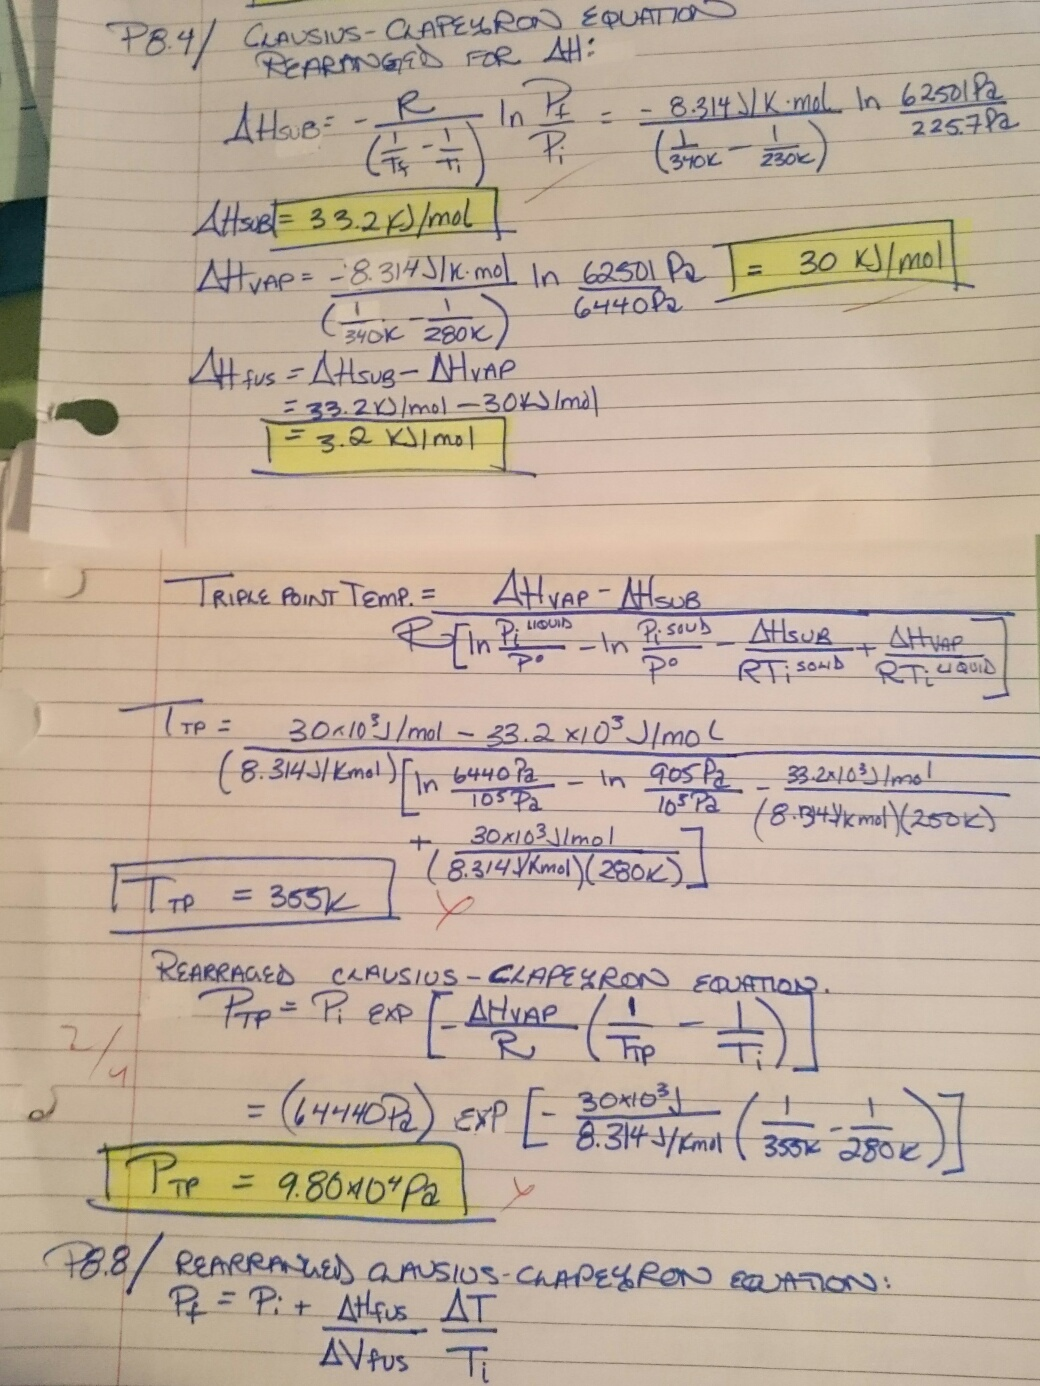 P8.4/ CLAUSIUS-CLAPEYRON EQUATION
REARANGED FOR ΔH:
ΔHSUB = - R/(1/Tf - 1/Ti) ln Pf/Pi = - 8.314 J/K·mol/(1/340K - 1/230K) ln 62501Pa/225.7Pa
ΔHSUB = 33.2 KJ/mol
ΔHVAP = -8.314 J/K·mol/(1/340K - 1/280K) ln 62501 Pa/6440Pa = 30 KJ/mol
ΔHfus = ΔHSUB - ΔHVAP
= 33.2KJ/mol - 30KJ/mol
= 3.2 KJ/mol
TRIPLE POINT TEMP. = ΔHVAP - ΔHSUB / R[ln Pi LIQUID/P° - ln Pi SOLID/P° - ΔHSUB/RTi SOLID + ΔHVAP/RTi LIQUID]
TTP = 30x10³J/mol - 33.2 x10³ J/mol
(8.314J/Kmol)[ln 6440Pa/10⁵Pa - ln 905Pa/10⁵Pa - 33.2x10³J/mol/(8.314J/Kmol)(250K)
+ 30x10³J/mol/(8.314J/Kmol)(280K)]
TTP = 355K X
REARRAGED CLAUSIUS-CLAPEYRON EQUATION.
PTP = Pi EXP [-ΔHVAP/R (1/TTP - 1/Ti)]
2/4
= (64440Pa) EXP [- 30x10³J/8.314 J/Kmol (1/355K - 1/280K)]
PTP = 9.80x10⁴Pa X
P8.8/ REARRANGED CLAUSIUS-CLAPEYRON EQUATION:
Pf = Pi + ΔHfus/ΔVfus ΔT/Ti